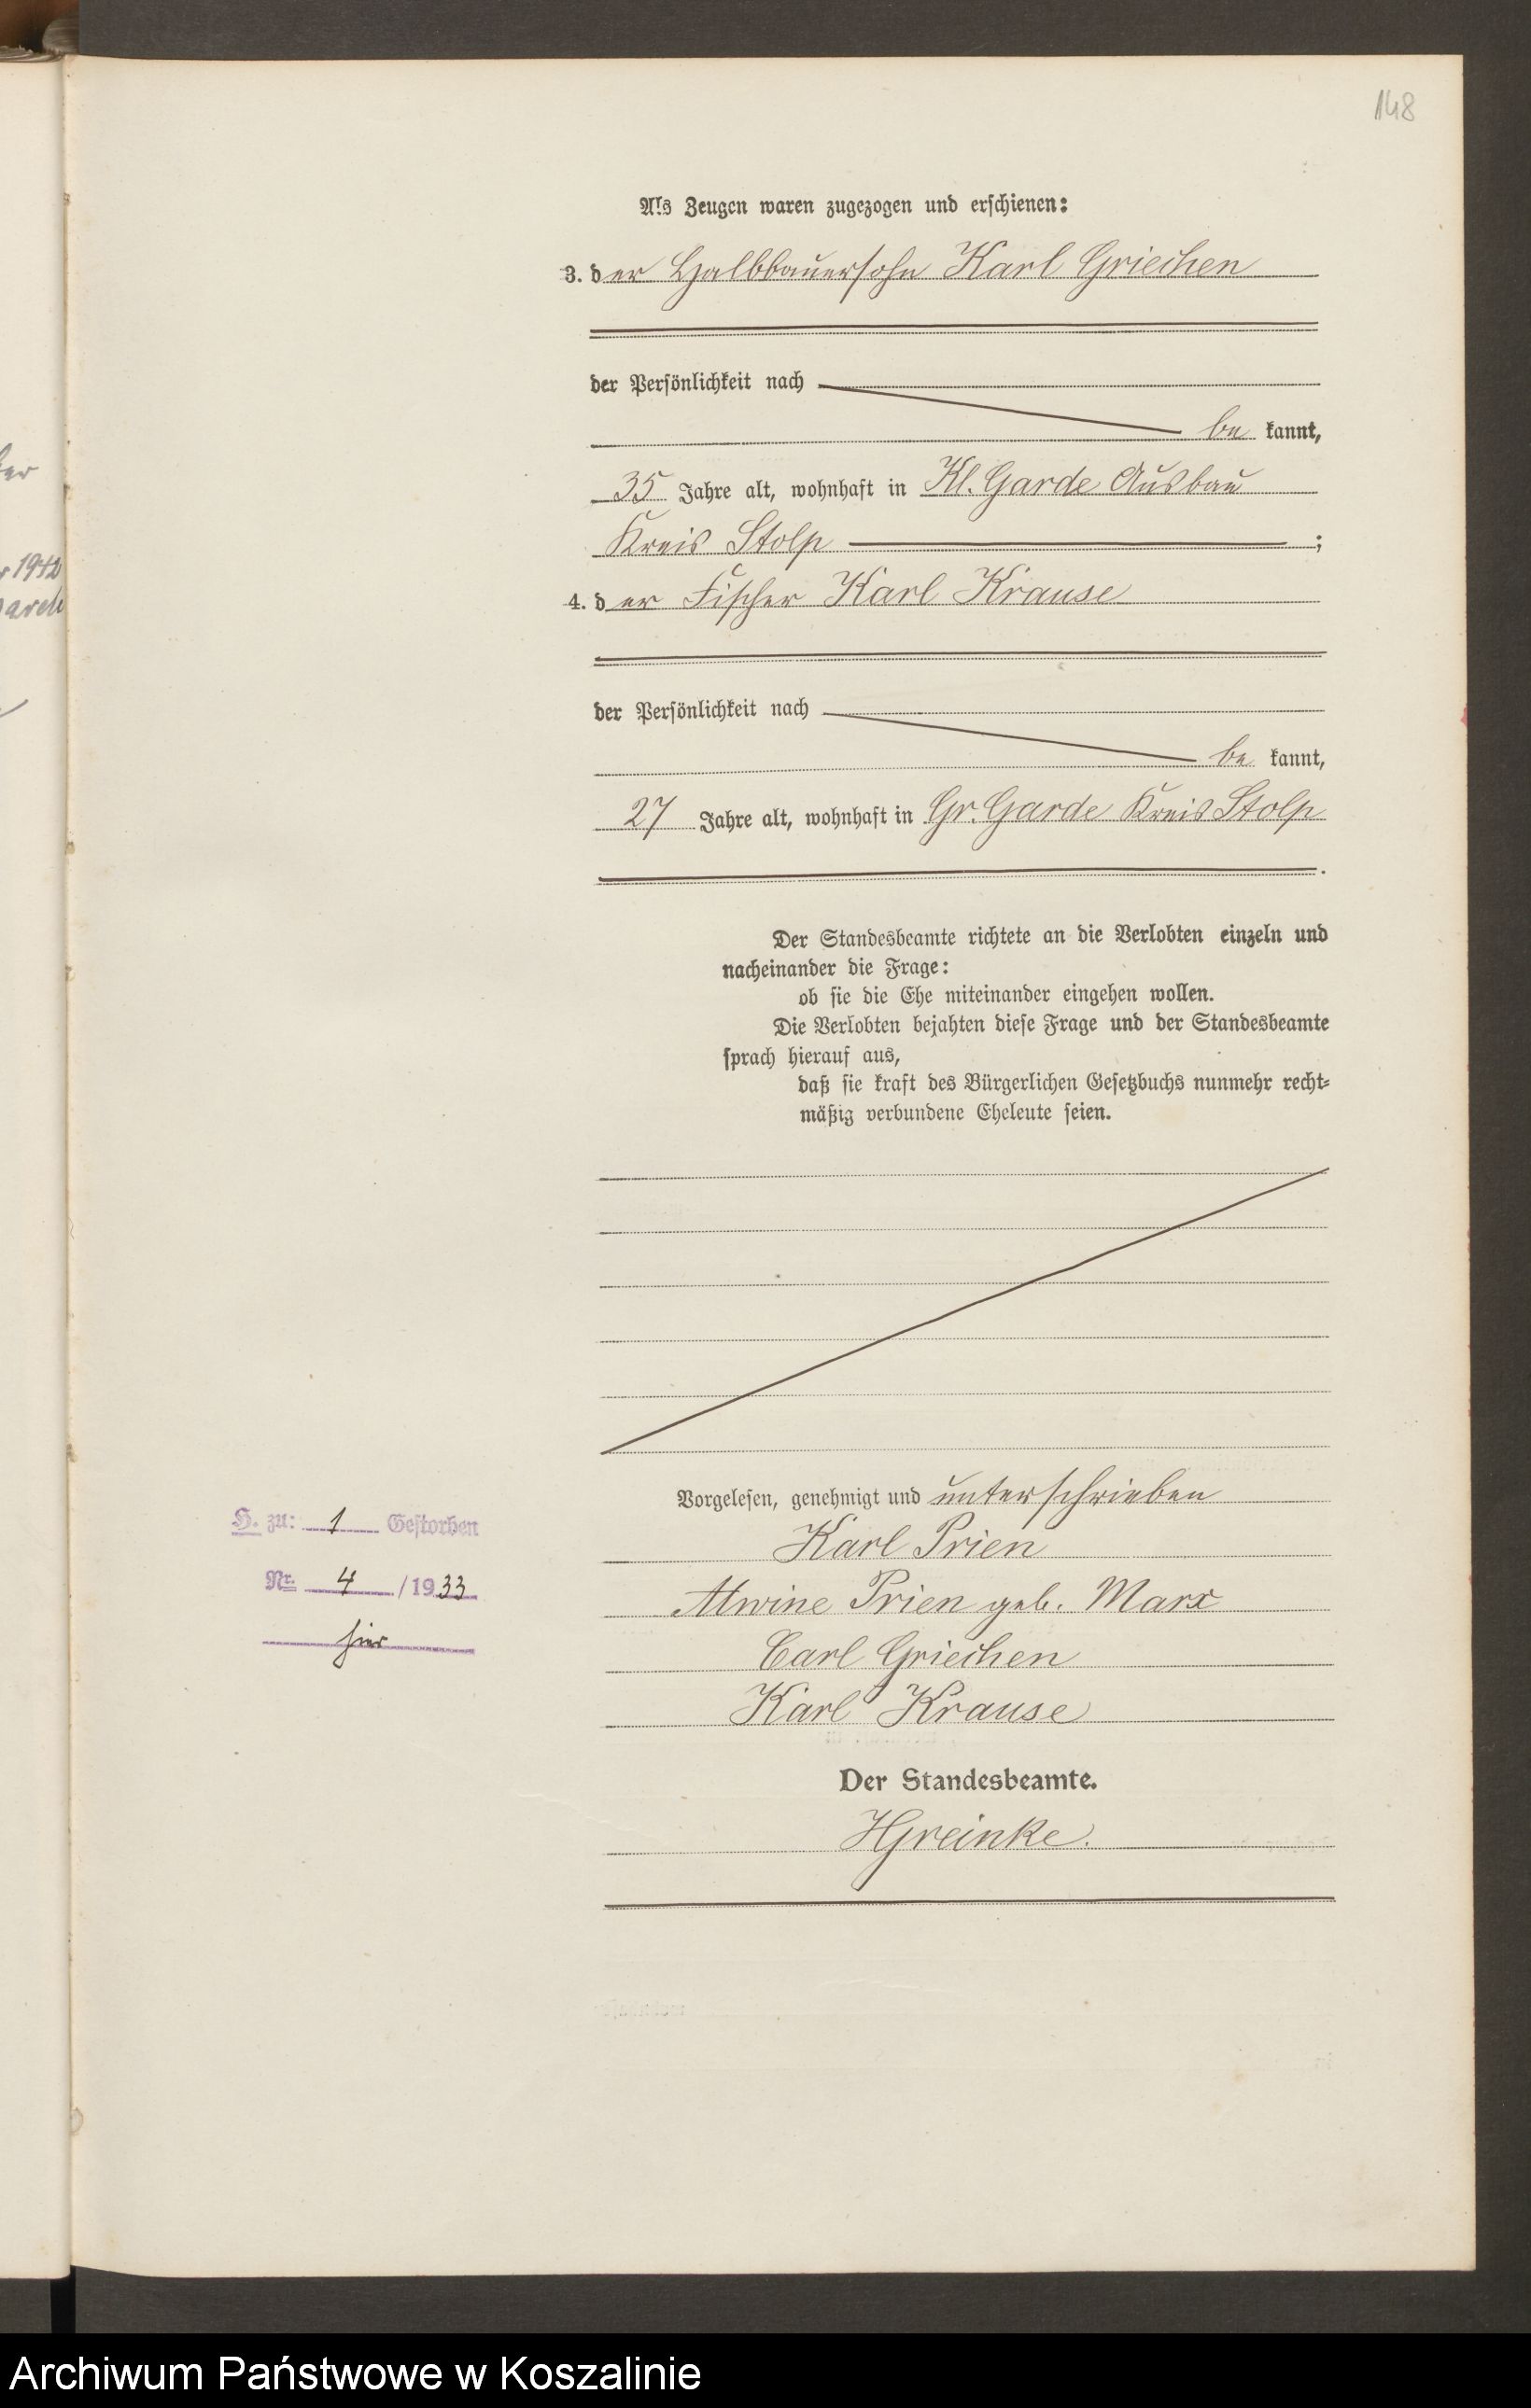 148
Als Zeugen waren zugezogen und erschienen:
3. der Halbbauersohn Karl Griechen
der Persönlichkeit nach
be kannt,
35 Jahre alt, wohnhaft in Kl. Garde Ausbau
Kreis Stolp ;
4. der Fischer Karl Krause
der Persönlichkeit nach
be kannt,
27 Jahre alt, wohnhaft in Gr. Garde Kreis Stolp
.
Der Standesbeamte richtete an die Verlobten einzeln und
nacheinander die Frage:
ob sie die Ehe miteinander eingehen wollen.
Die Verlobten bejahten diese Frage und der Standesbeamte
sprach hierauf aus,
daß sie kraft des Bürgerlichen Gesetzbuchs nunmehr recht-
mäßig verbundene Eheleute seien.
Vorgelesen, genehmigt und unterschrieben
Karl Prien
Alwine Prien geb. Marx
Carl Griechen
Karl Krause
Der Standesbeamte.
HGreinke.
H. zu: 1 Gestorben
Nr. 4 /1933
hier
1942
Archiwum Państwowe w Koszalinie